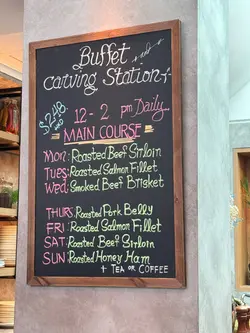 Buffet
carving Station
12 - 2 pm Daily
MAIN COURSE
MON: Roasted Beef Sirloin
TUES: Roasted Salmon Fillet
Wed: Smoked Beef Brisket
THURS: Roasted Pork Belly
FRI: Roasted Salmon Fillet
SAT: Roasted Beef Sirloin
SUN: Roasted Honey Ham
+ TEA OR COFFEE